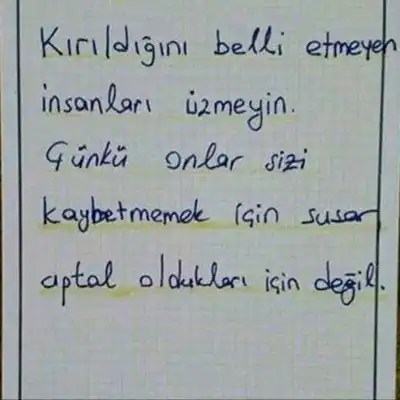 Kırıldığını belli etmeyen
insanları üzmeyin.
Çünkü onlar sizi
kaybetmemek için susar
aptal oldukları için değil.